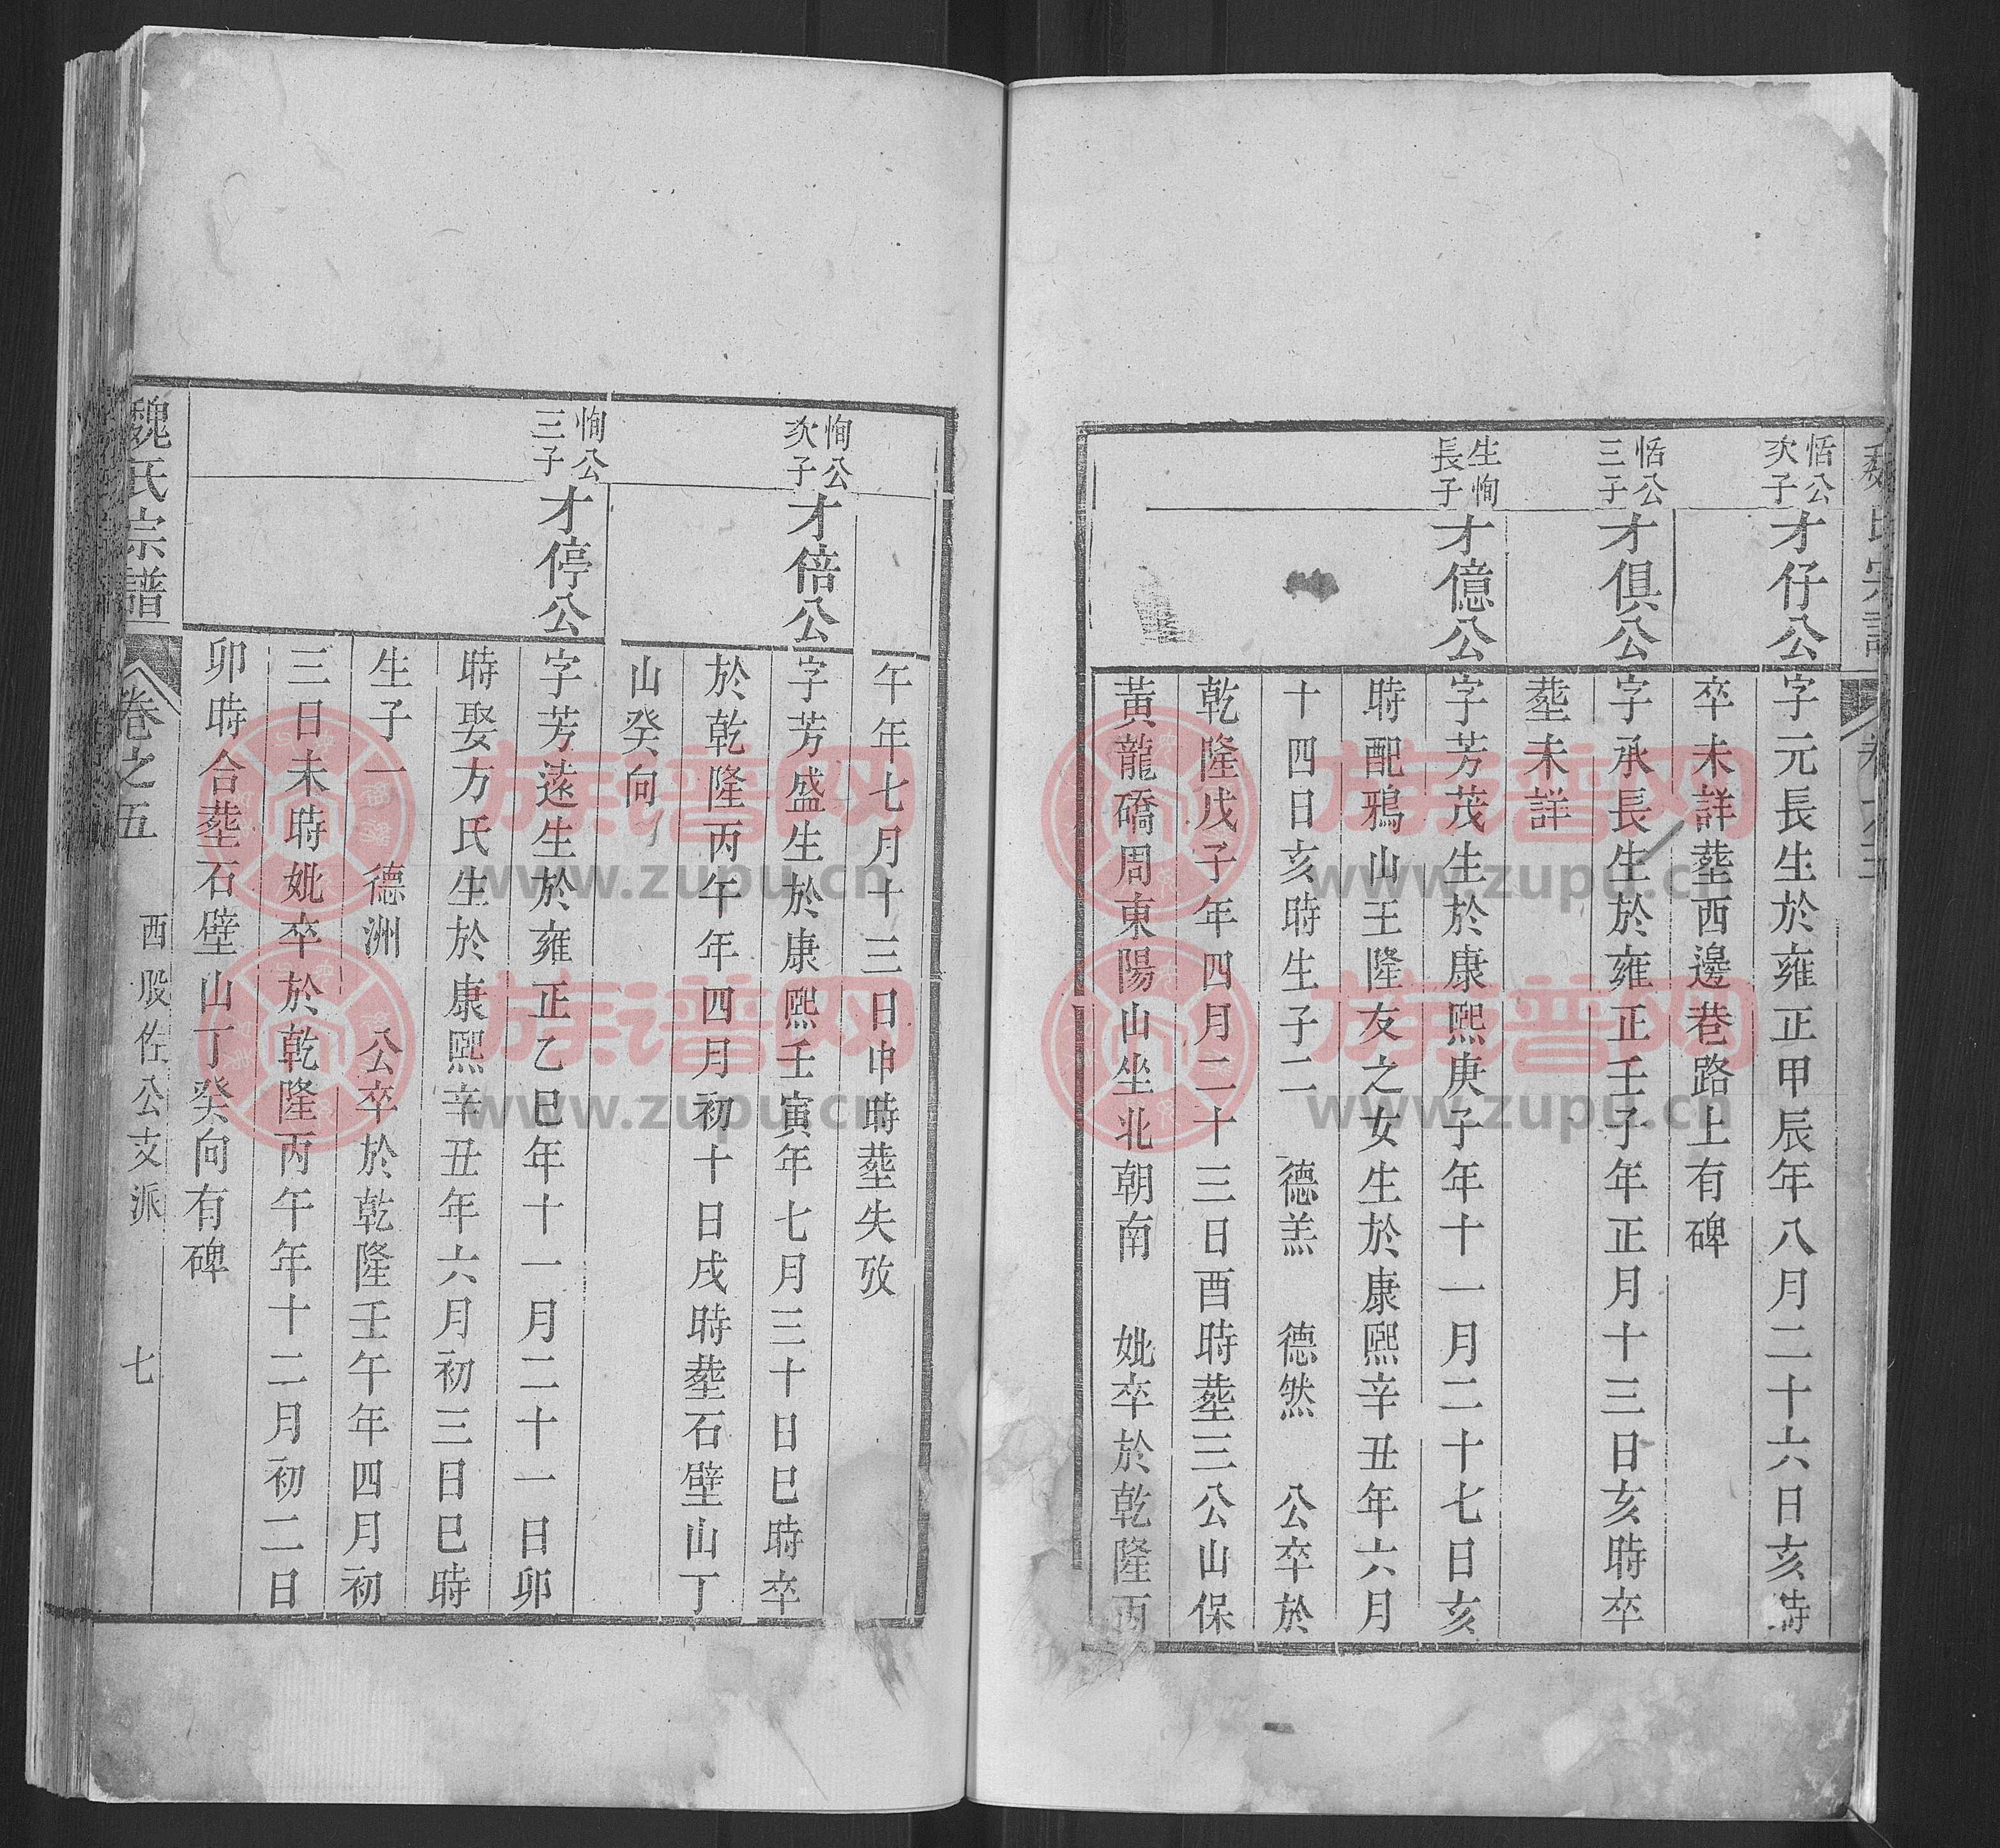 恬公次子
才仔公
字元長生於雍正甲辰年八月二十六日亥時
卒未詳塟西邊巷路上有碑
恬公三子
才俱公
字承長生於雍正壬子年正月十三日亥時卒
塟未詳
生恂長子
才億公
字芳茂生於康熙庚子年十一月二十七日亥
時配鴉山王隆友之女生於康熙辛丑年六月
十四日亥時生子二 德羔 德然 公卒於
乾隆戊子年四月二十三日酉時塟三公山保
黃龍礄周東陽山坐北朝南 妣卒於乾隆丙
午年七月十三日申時塟失攷
恂公次子
才倍公
字芳盛生於康熙壬寅年七月三十日巳時卒
於乾隆丙午年四月初十日戌時塟石壁山丁
山癸向
恂公三子
才停公
字芳遠生於雍正乙巳年十一月二十一日卯
時娶方氏生於康熙辛丑年六月初三日巳時
生子一 德洲 公卒於乾隆壬午年四月初
三日未時妣卒於乾隆丙午年十二月初二日
卯時合塟石壁山丁癸向有碑
魏氏宗譜
卷之五
西股佐公支派
七
族谱网
www.zupu.cn
族谱网
www.zupu.cn
族谱网
www.zupu.cn
族谱网
www.zupu.cn